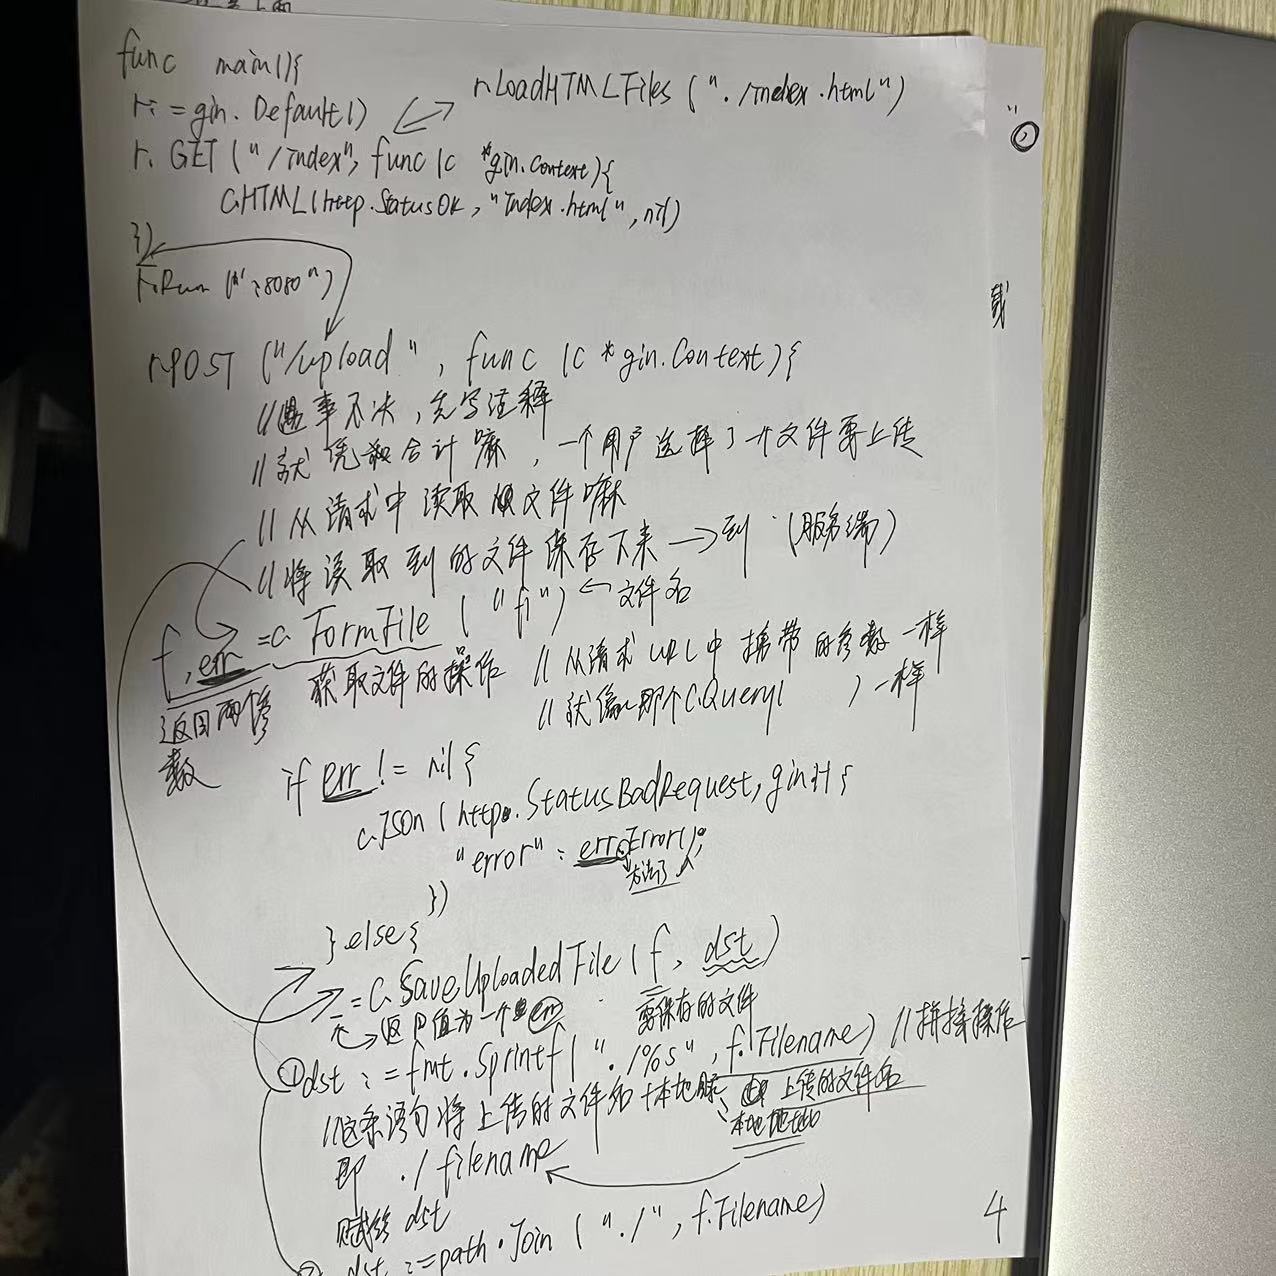 func main(){
r:=gin.Default()
r.LoadHTMLFiles("./index.html")
r.GET("/index", func(c *gin.Context){
c.HTML(http.StatusOK,"index.html",nil)
})
r.Run(":8080")
r.POST("/upload", func(c *gin.Context){
//遇事不决,先写注释
//就 合计嘛,一个用户选择了一个文件要上传
//从请求中读取 文件嘛
//将读取到的文件保存下来→到(服务端)
f,err:=c.FormFile("f1")←文件名
返回两个参数
获取文件的操作
//从请求URL中携带的参数一样
//就像 那个c.Query( )一样
if err != nil{
c.JSON(http.StatusBadRequest,gin.H{
"error":err.Error(),
方法
})
}else{
_=c.SaveUploadedFile(f, dst)
返回值为一个err
要保存的文件
①dst:=fmt.Sprintf("./%s",f.Filename) //拼接操作
//这条语句将上传的文件名+本地
上传的文件名
本地地址
即 ./filename
赋给dst
②dst:=path.Join("./",f.Filename)
4